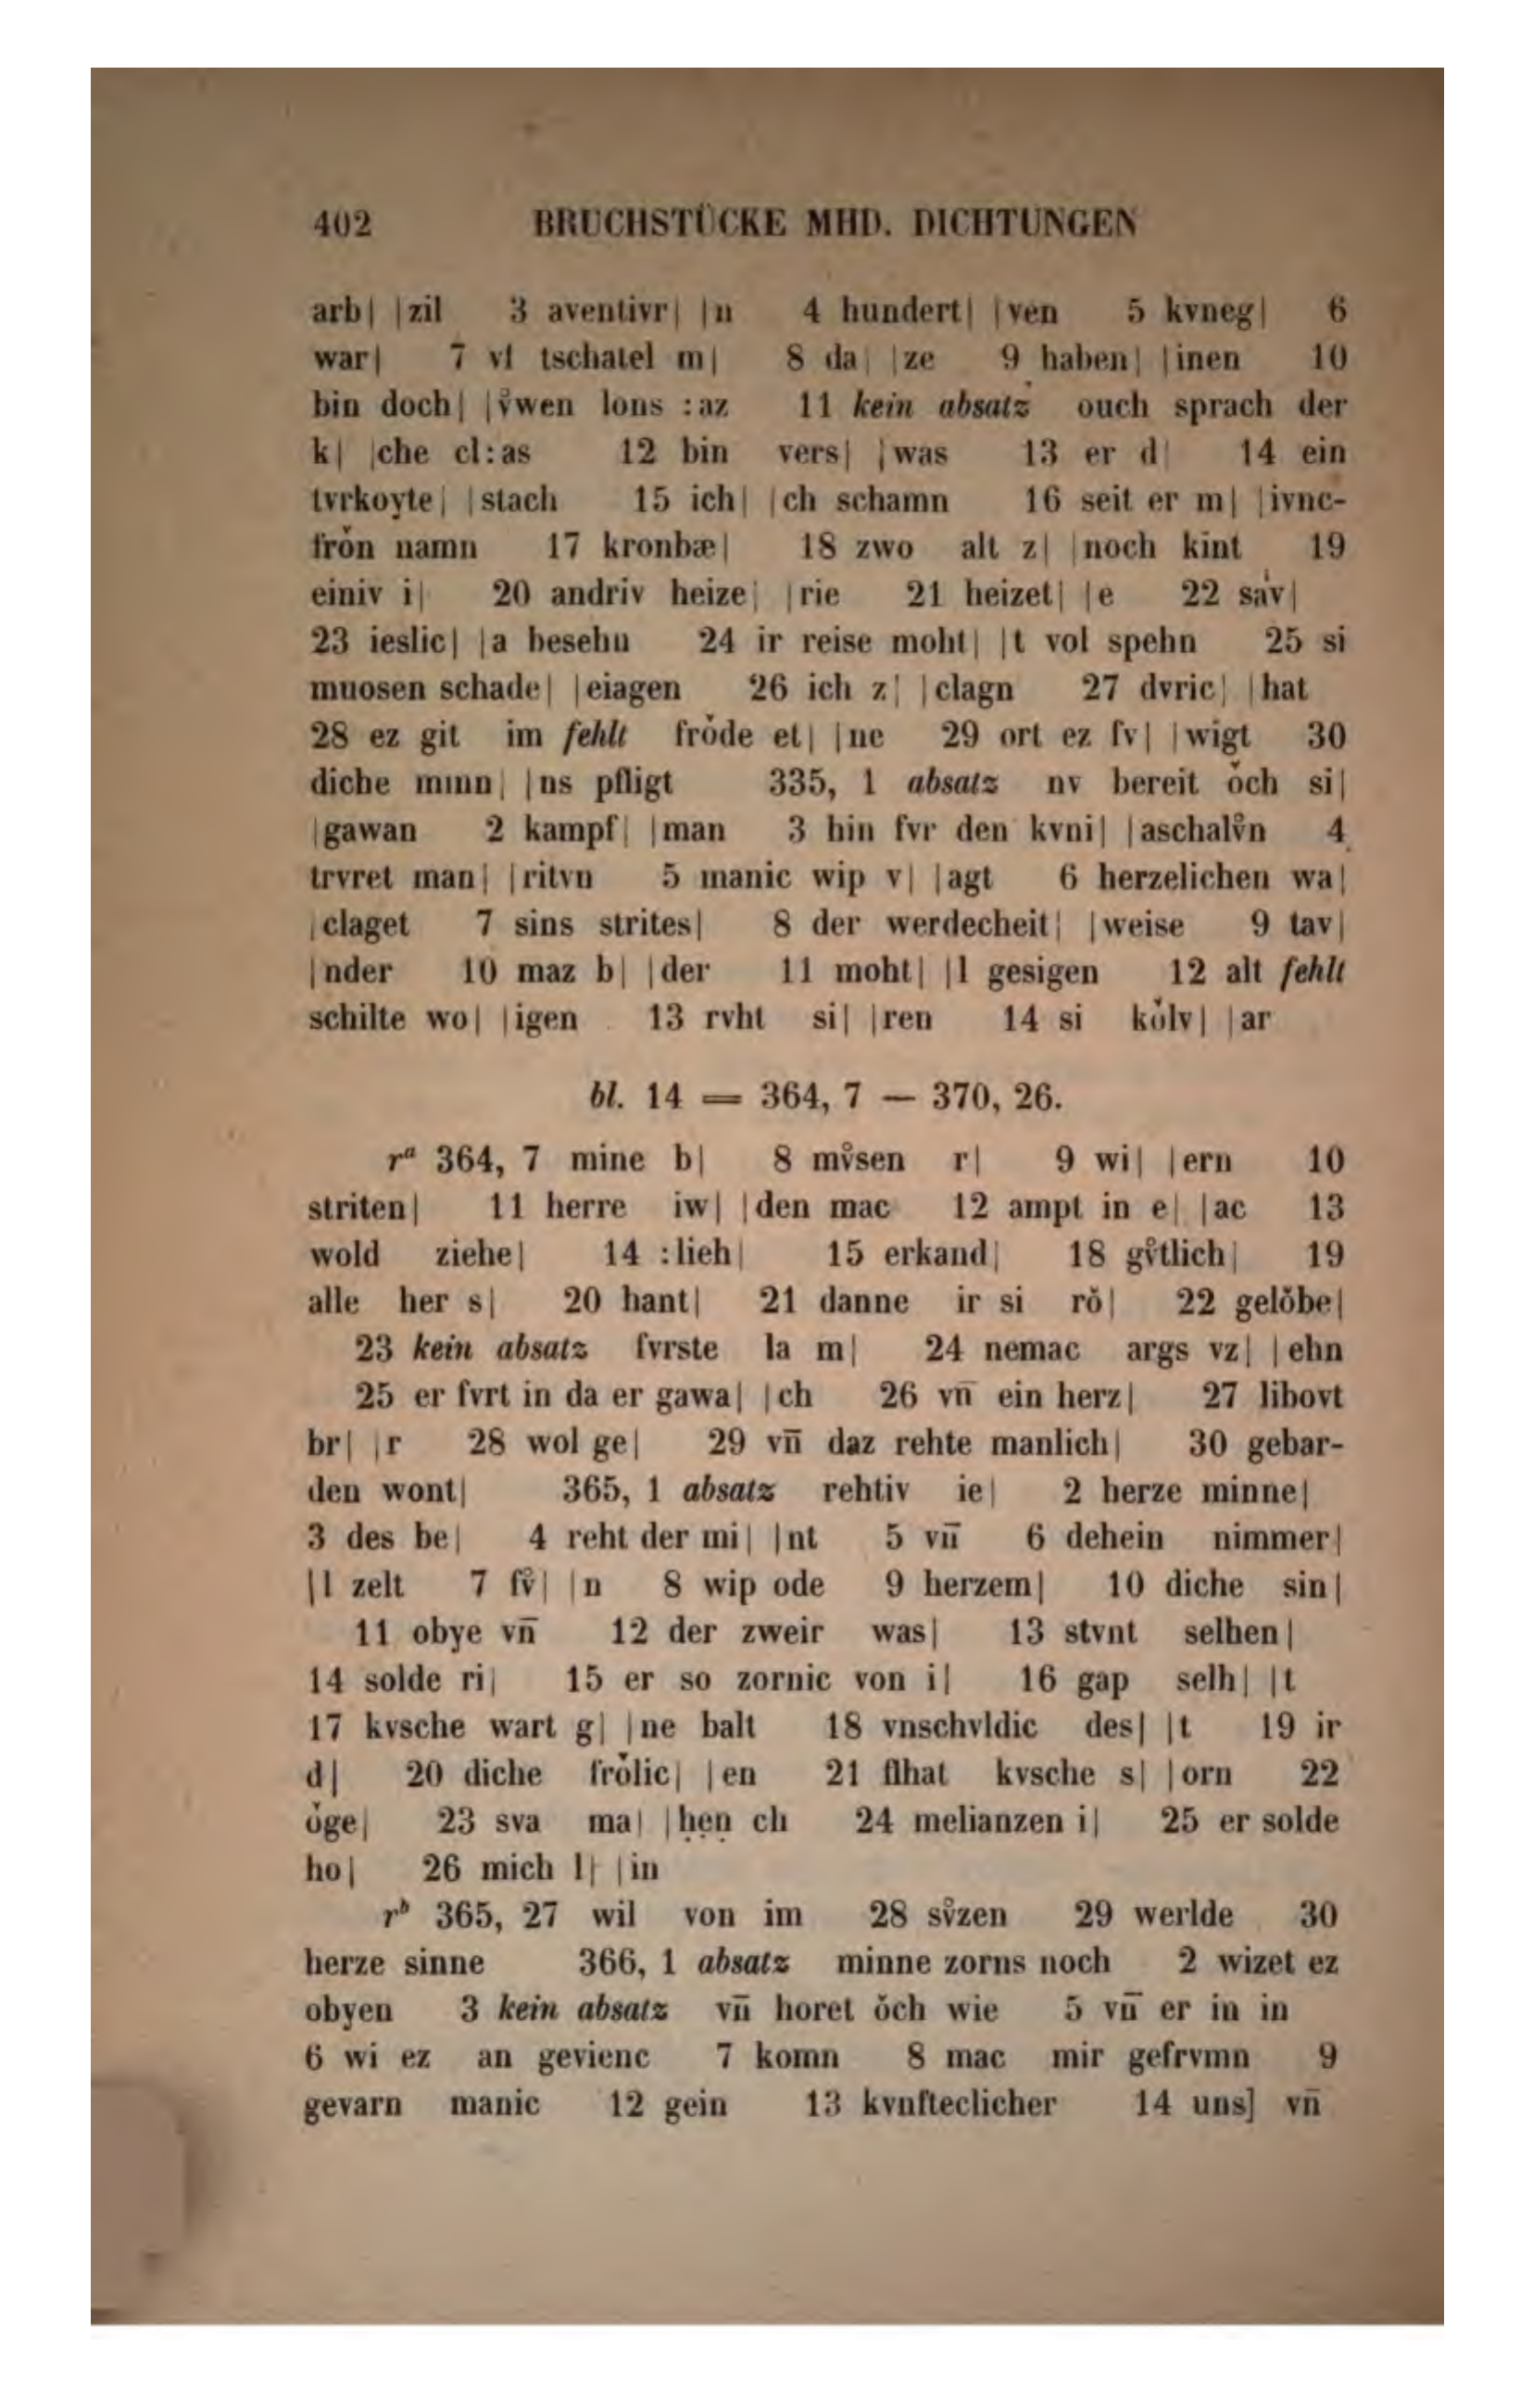 402 BRUCHSTÜCKE MHD. DICHTUNGEN
arb| |zil 3 aventivr| |n 4 hundert| |ven 5 kvneg| 6
war| 7 vf tschatel m| 8 da| |ze 9 haben| |inen 10
bin doch| |v̊wen lons :az 11 kein absatz ouch sprach der
k| |che cl:as 12 bin vers| |was 13 er d| 14 ein
tvrkoyte| |stach 15 ich| |ch schamn 16 seit er m| |ivnc-
frǒn namn 17 kronbæ| 18 zwo alt z| |noch kint 19
einiv i| 20 andriv heize| |rie 21 heizet| |e 22 sav̇|
23 ieslic| |a besehn 24 ir reise moht| |t vol spehn 25 si
muosen schade| |eiagen 26 ich z| |clagn 27 dvric| |hat
28 ez git im fehlt frǒde et| |ne 29 ort ez fv| |wigt 30
diche minn| |ns pfligt 335, 1 absatz nv bereit ǒch si|
|gawan 2 kampf| |man 3 hin fvr den kvni| |aschalv̊n 4
trvret man| |ritvn 5 manic wip v| |agt 6 herzelichen wa|
|claget 7 sins strites| 8 der werdecheit| |weise 9 tav|
|nder 10 maz b| |der 11 moht| |l gesigen 12 alt fehlt
schilte wo| |igen 13 rvht si| |ren 14 si kǒlv| |ar
bl. 14 = 364, 7 — 370, 26.
rᵃ 364, 7 mine b| 8 mv̊sen r| 9 wi| |ern 10
striten| 11 herre iw| |den mac 12 ampt in e| |ac 13
wold ziehe| 14 :lieh| 15 erkand| 18 gv̊tlich| 19
alle her s| 20 hant| 21 danne ir si rǒ| 22 gelǒbe|
23 kein absatz fvrste la m| 24 nemac args vz| |ehn
25 er fvrt in da er gawa| |ch 26 vn̄ ein herz| 27 libovt
br| |r 28 wol ge| 29 vn̄ daz rehte manlich| 30 gebar-
den wont| 365, 1 absatz rehtiv ie| 2 herze minne|
3 des be| 4 reht der mi| |nt 5 vn̄ 6 dehein nimmer|
|l zelt 7 fv̊| |n 8 wip ode 9 herzem| 10 diche sin|
11 obye vn̄ 12 der zweir was| 13 stvnt selhen|
14 solde ri| 15 er so zornic von i| 16 gap selh| |t
17 kvsche wart g| |ne balt 18 vnschvldic des| |t 19 ir
d| 20 diche frǒlic| |en 21 flhat kvsche s| |orn 22
ǒge| 23 sva ma| |ḥẹṇ ch 24 melianzen i| 25 er solde
ho| 26 mich l| |in
rᵇ 365, 27 wil von im 28 sv̊zen 29 werlde 30
herze sinne 366, 1 absatz minne zorns noch 2 wizet ez
obyen 3 kein absatz vn̄ horet ǒch wie 5 vn̄ er in in
6 wi ez an gevienc 7 komn 8 mac mir gefrvmn 9
gevarn manic 12 gein 13 kvnfteclicher 14 uns] vn̄